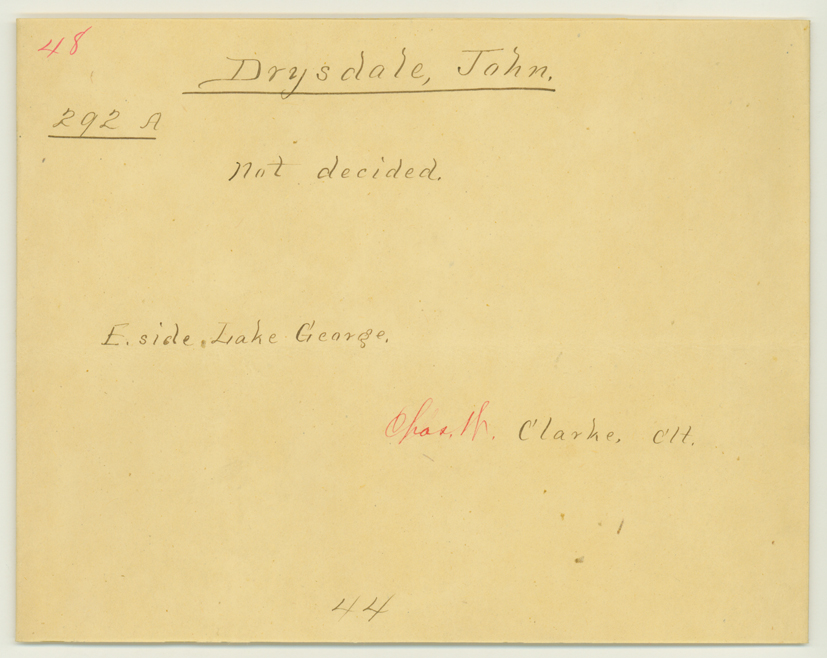 48
Drysdale, John.
292 A
Not decided.
E. side, Lake George.
Chas. W. Clarke, Clt.
44